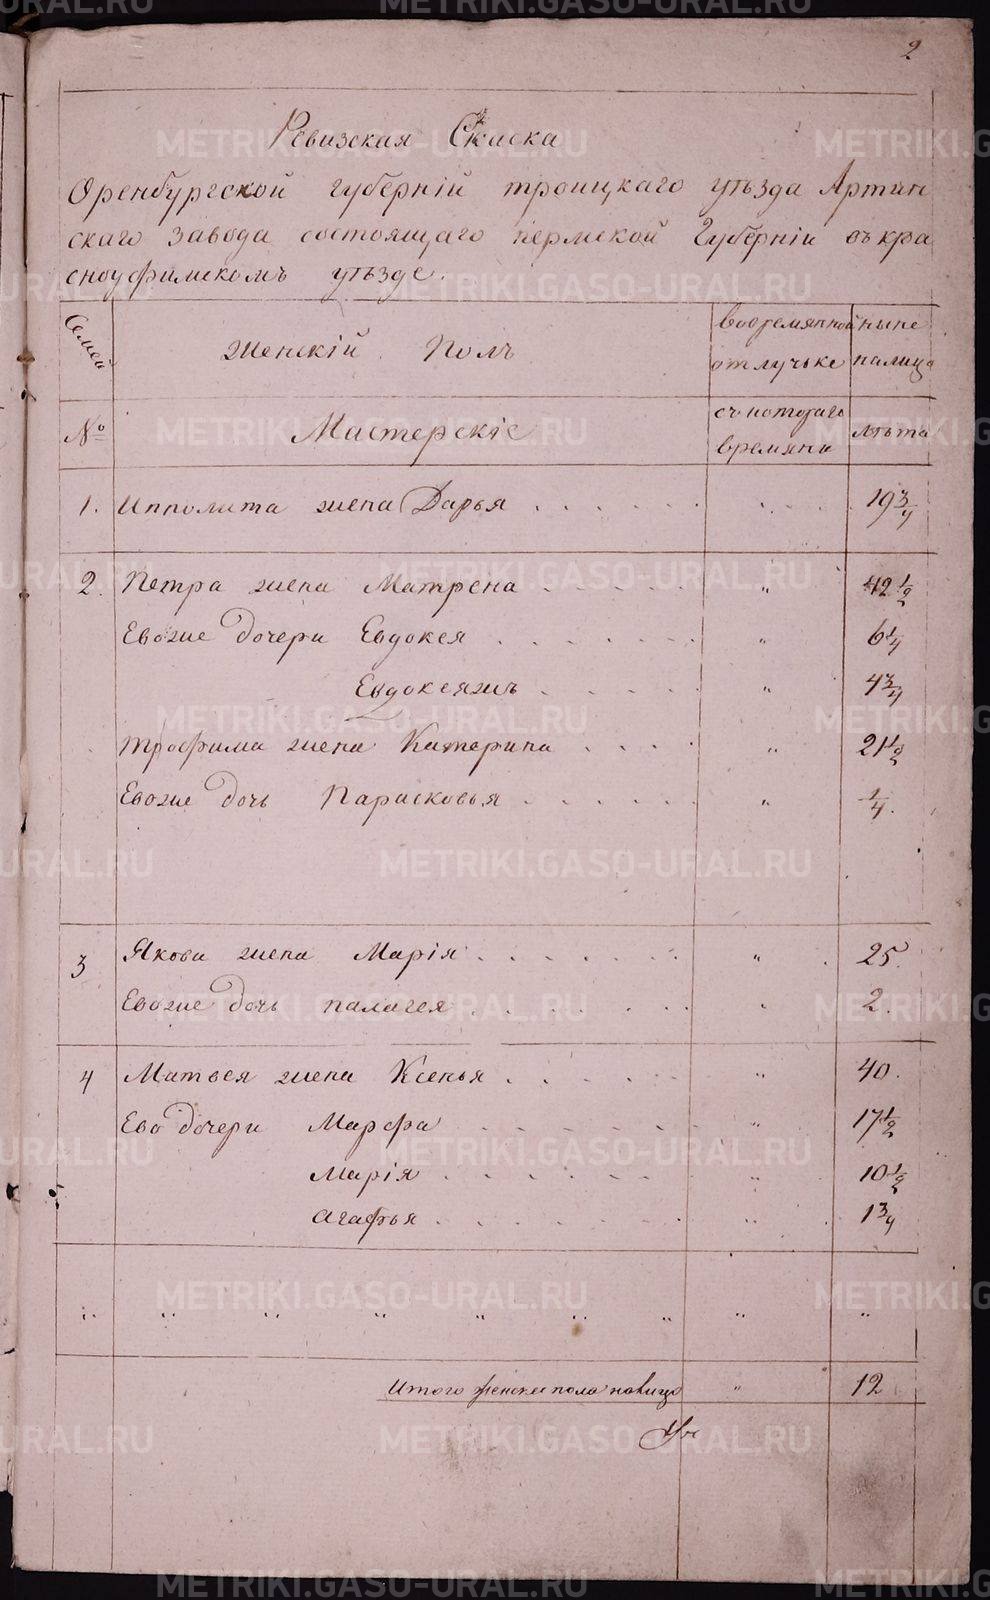 2
Ревизская Скаска
Оренбургской губерніи троицкаго уѣзда Артин
скаго завода состоящаго пермской Губерніи въ кра
сноуфимскомъ уѣзде.
Семей
Женскій Полъ
вовремянной отлучьке
ныне налицо
№
Мастерскіе
съ котораго времяни
лѣта
1. Ипполита жена Дарья . . . . . . 19 3/4
2. Петра жена Матрена . . . . . . " 42 1/2
Евоxие дочери Евдокея . . . . . . " 6 1/4
Евдокеяжъ . . . . . " 4 3/4
трофима жена Катерина . . . . " 21 1/2
Евоxие дочь Парасковья . . . . . . " 1/4.
3 Якова жена Марія . . . . . . . " 25.
Евоxие дочь палагея . . . . . . " 2.
4 Матвея жена Ксенья . . . . . . " 40.
Ево дочери Марфа . . . . . . " 17 1/2
Марія . . . . . . " 10 1/2
агафья . . . . . . " 1 3/4
" " " " " " " " "
Итого женска пола налицо " 12
METRIKI.GASO-URAL.RU